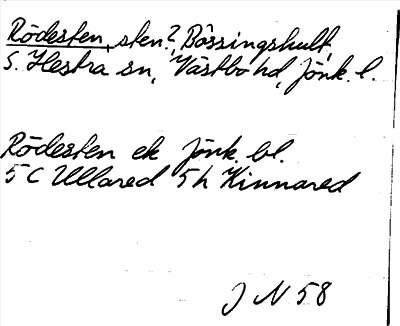 Rödesten, sten? Bössingshult,
S. Hestra sn, Västbo hd, Jönk. l.
Rödesten ek Jönk. bl.
5 C Ullared 5 h Kinnared
J N 58